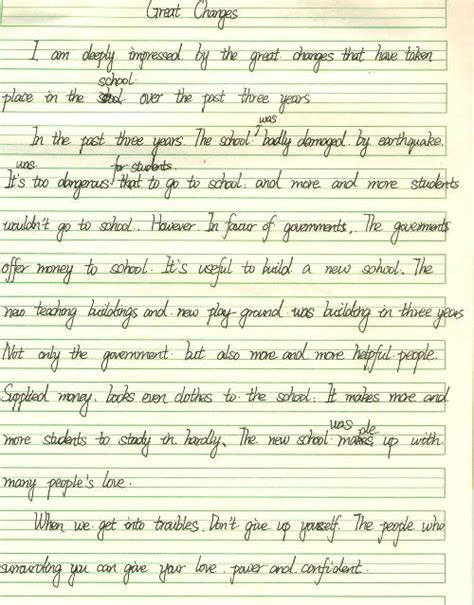 Great Changes
I am deeply impressed by the great changes that have taken
school
place in the over the past three years
was
In the past three years. The school badly damaged by earthquake.
was for students
It's too dangerous that to go to school. and more and more students
wouldn't go to school. However. In favor of governments,. The goverments
offer money to school. It's useful to build a new school. The
new teaching buildings and new play-ground was building in three years
Not only the government. but also more and more helpful people.
Supplied money. books even clothes to the school. It makes more and
more students to study in hardly. The new school
was
up with
many people's love.
When we get into troubles. Don't give up youself. The people who
surrounding you can give your love. power and confident.